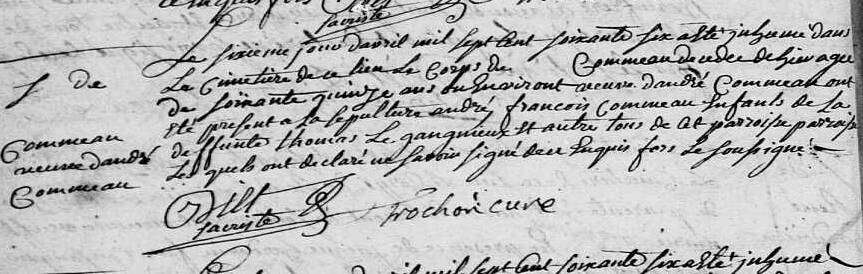 sacriste
S de
Commeau
veuve d'andré
Commeau
Le sixieme jour davril mil sept cent soixante six a été inhumé dans
Le Cimetière de ce lieu Le Corps de Commeau decedee de hier agee
de soixante quinze ans ou Environt veuve d'andré Commeau ont
Eté present a la sepulture andré francois Commeau Enfants de La
defunte thomas Le gangneux Et autre tous de cet parroisse
Lequels ont declaré ne savoir signé de ce Enquis fors Le soussigné
sacriste
trochon cure
avril mil sept cent soixante six a été inhumé